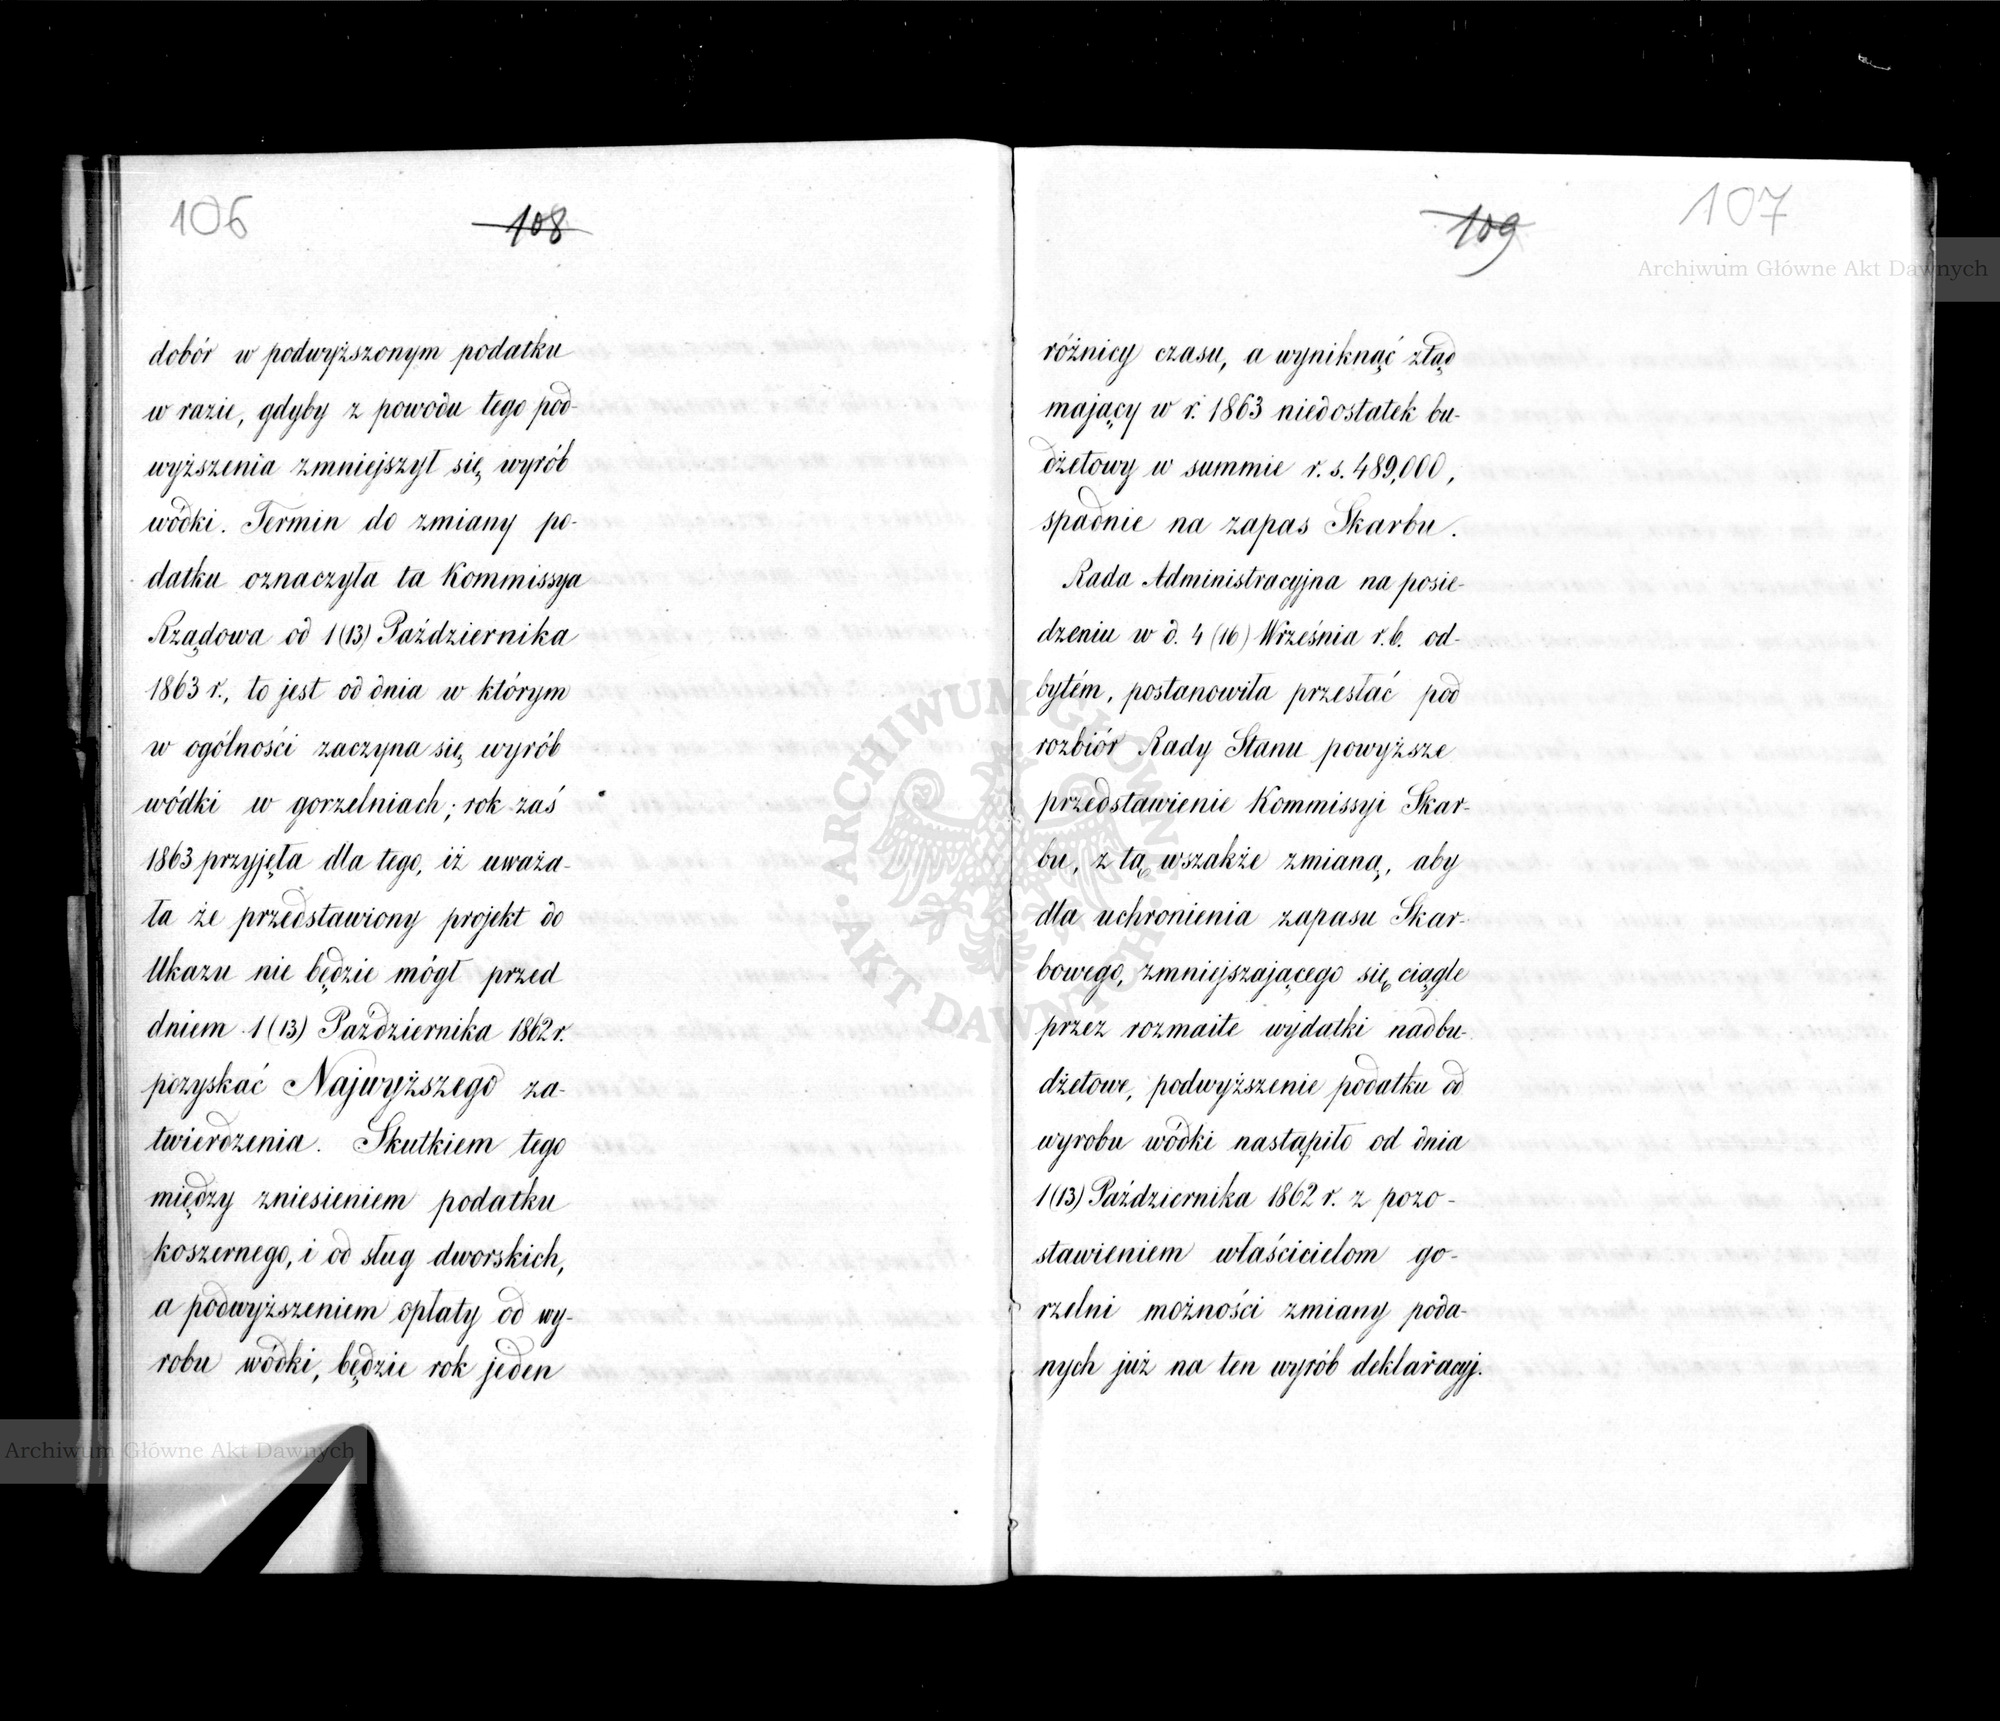 106
108
dobór w podwyższonym podatku
w razie, gdyby z powodu tego pod-
wyższenia zmniejszył się wyrób
wódki. Termin do zmiany po-
datku oznaczyła ta Kommissya
Rządowa od 1(13) Października
1863 r., to jest od dnia w którym
w ogólności zaczyna się wyrób
wódki w gorzelniach; rok zaś
1863 przyjęła dla tego, iż uważa-
ła że przedstawiony projekt do
Ukazu nie będzie mógł przed
dniem 1(13) Października 1862 r.
pozyskać Najwyższego za-
twierdzenia. Skutkiem tego
między zniesieniem podatku
koszernego, i od sług dworskich,
a podwyższeniem opłaty od wy-
robu wódki, będzie rok jeden
109
107
różnicy czasu, a wyniknąć ztąd
mający w r. 1863 niedostatek bu-
dżetowy w summie r. s. 489,000,
spadnie na zapas Skarbu.
Rada Administracyjna na posie-
dzeniu w d. 4 (16) Września r. b. od-
bytém, postanowiła przesłać pod
rozbiór Rady Stanu powyższe
przedstawienie Kommissyi Skar-
bu, z tą wszakże zmianą, aby
dla uchronienia zapasu Skar-
bowego, zmniejszającego się ciągle
przez rozmaite wydatki nadbu-
dżetowe, podwyższenie podatku od
wyrobu wódki nastąpiło od dnia
1(13) Października 1862 r. z pozo-
stawieniem właścicielom go-
rzelni możności zmiany poda-
nych już na ten wyrób deklaracyj.
Archiwum Główne Akt Dawnych
Archiwum Główne Akt Dawnych
ARCHIWUM GŁÓWNE AKT DAWNYCH